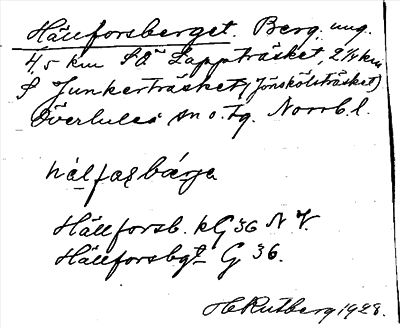 Hällforsberget. Berg, ung.
4,5 km SO Lappträsket, 2¼ km
S Junkerträsket (Jönsköls träsket)
Överluleå sn o. tg. Norrb. l.
hálfasbárja
Hällforsb. kG 36 N V.
Hällforsbgt G 36.
H Rutberg 1928.